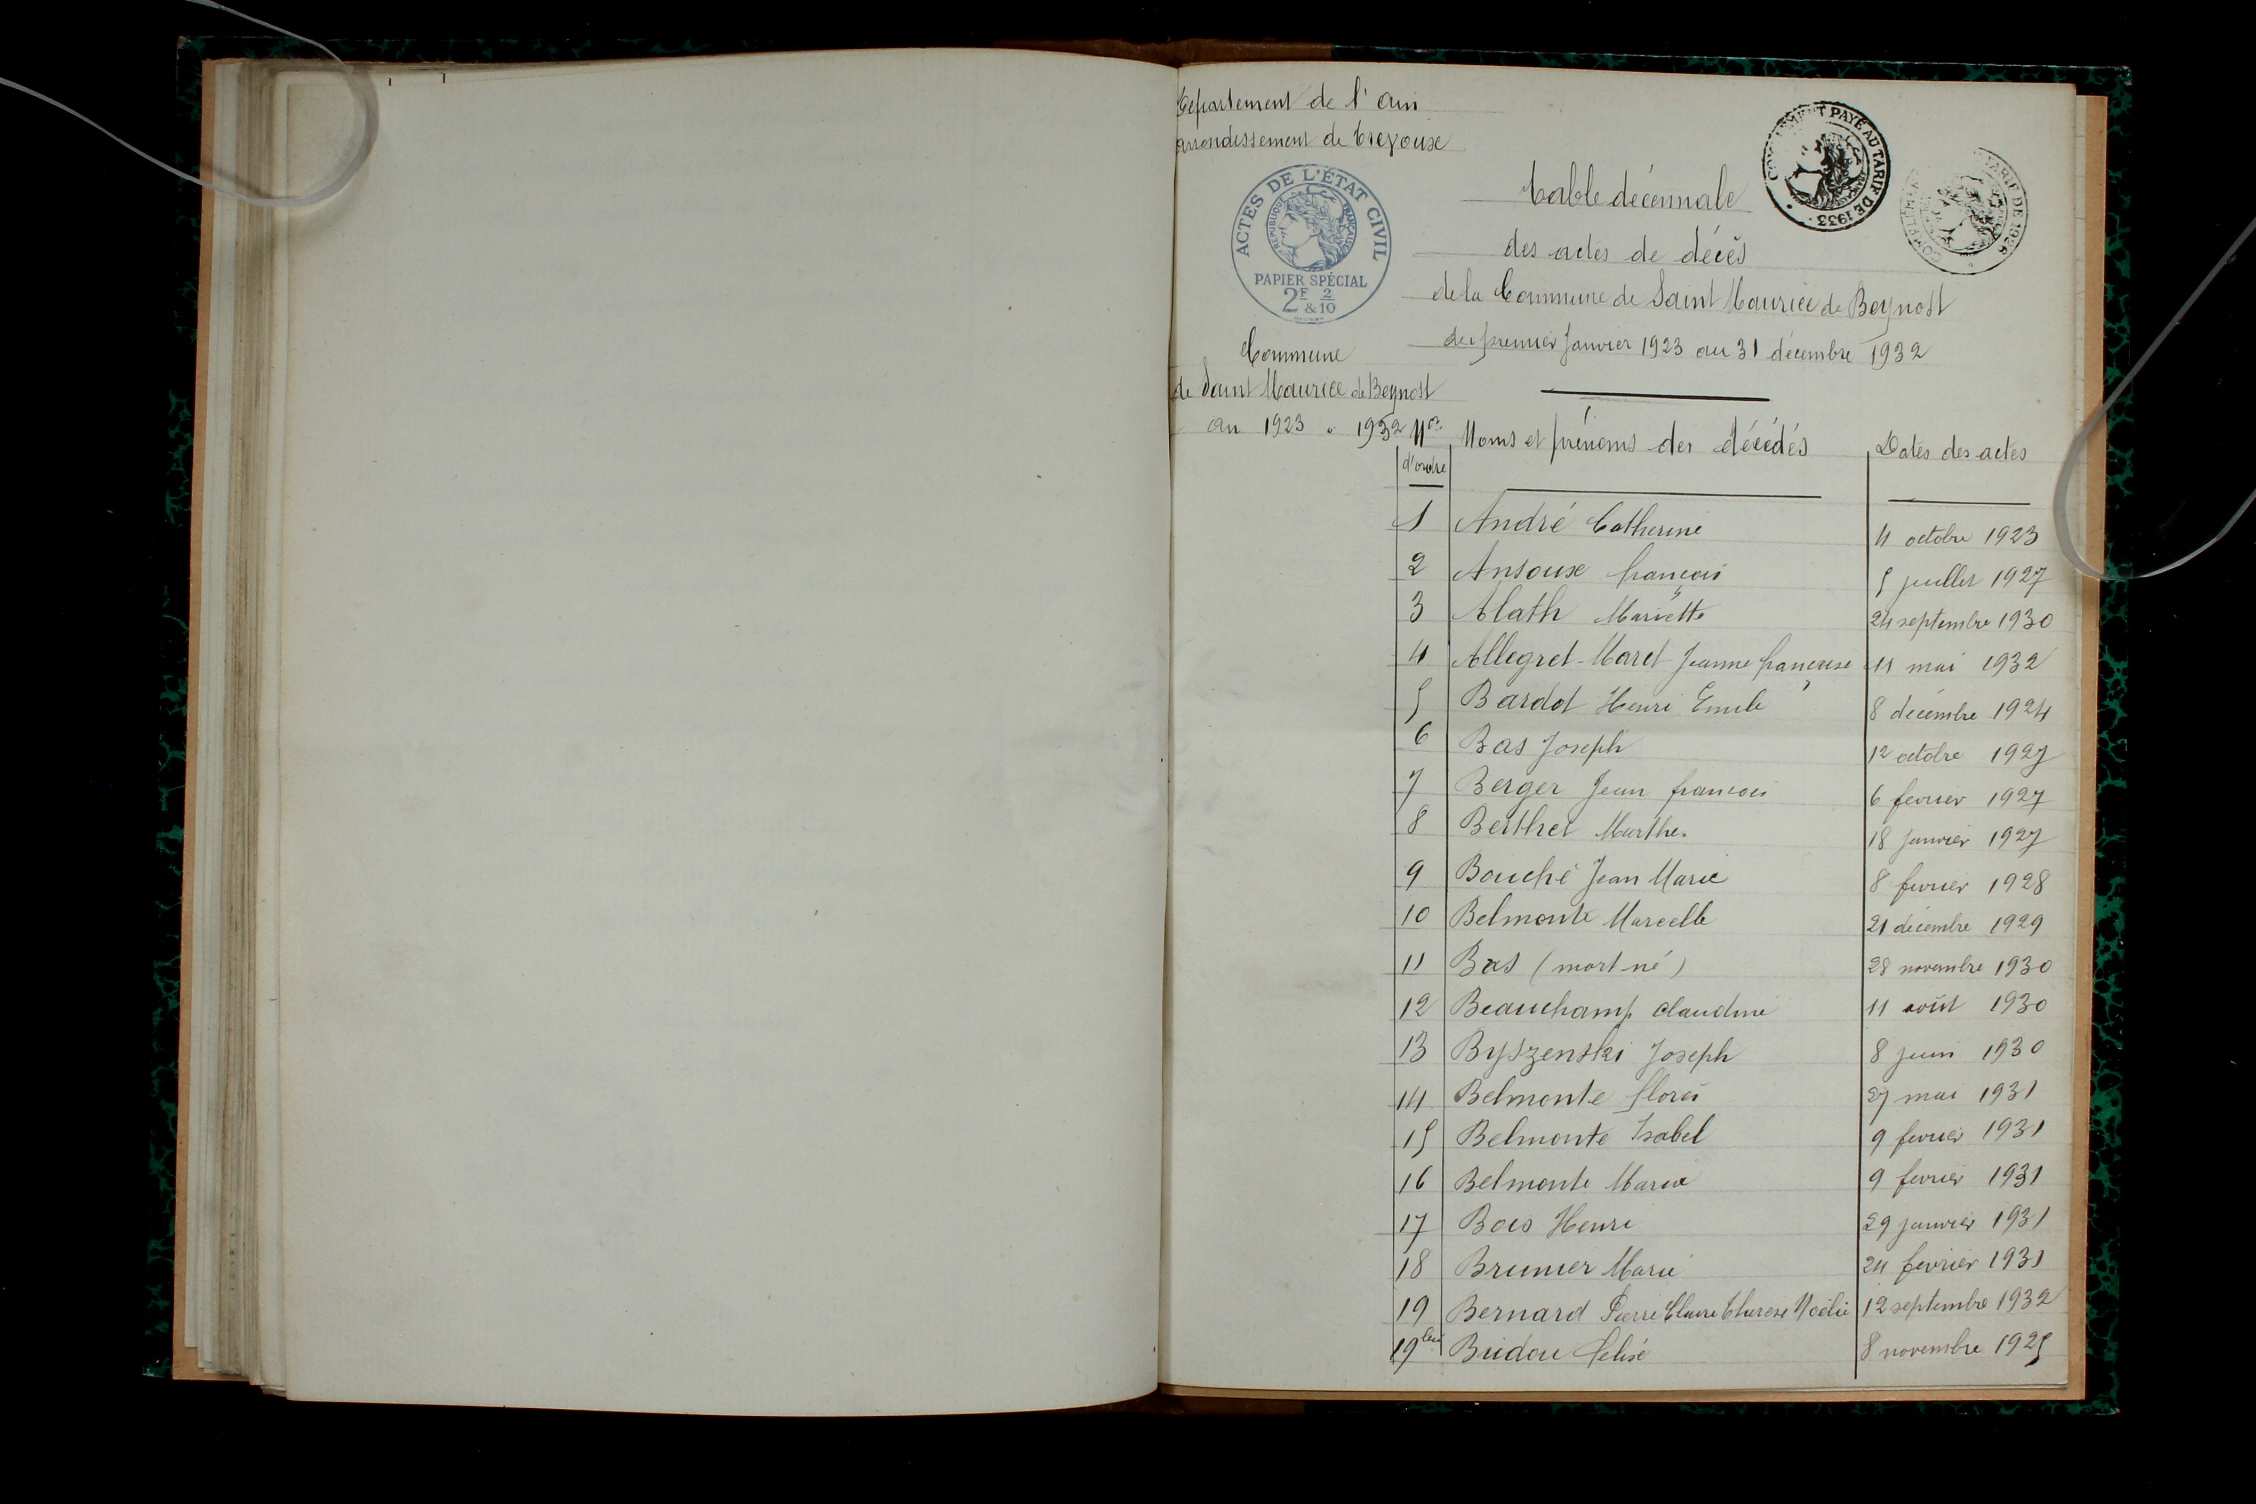 Département de l'Ain
arrondissement de Trévoux
ACTES DE L'ÉTAT CIVIL
RÉPUBLIQUE FRANÇAISE
PAPIER SPÉCIAL
2F 2/10
&
COMPLÉMENT PAYÉ AU TARIF DE 1933
COMPLÉMENT TARIF DE 1926
Table décennale
des actes de décès
de la Commune de Saint Maurice de Beynost
du premier Janvier 1923 au 31 décembre 1932
Commune
de Saint Maurice de Beynost
an 1923 a 1932
Nos d'ordre | Noms et prénoms des décédés | Dates des actes
1 André Catherine 4 octobre 1923
2 Ansoux françois 5 juillet 1927
3 Alath Mariette 24 septembre 1930
4 Allegret-Maret Jeanne françoise 11 mai 1932
5 Bardot Henri Emile 8 décembre 1924
6 Bas Joseph 12 octobre 1927
7 Berger Jean francois 6 fevrier 1927
8 Berthet Marthe 18 Janvier 1927
9 Bouché Jean Marie 8 fevrier 1928
10 Belmonte Marcelle 21 décembre 1929
11 Bas (mort-né) 28 novembre 1930
12 Beauchamp Claudine 11 août 1930
13 Byszenski Joseph 8 juin 1930
14 Belmonte 27 mai 1931
15 Belmonte Isabel 9 fevrier 1931
16 Belmonte Maria 9 fevrier 1931
17 Bois Henri 29 janvier 1931
18 Brunier Marie 24 fevrier 1931
19 Bernard Pierre Claire Therese Noélie 12 septembre 1932
19 bis Bridou Félise 8 novembre 1925